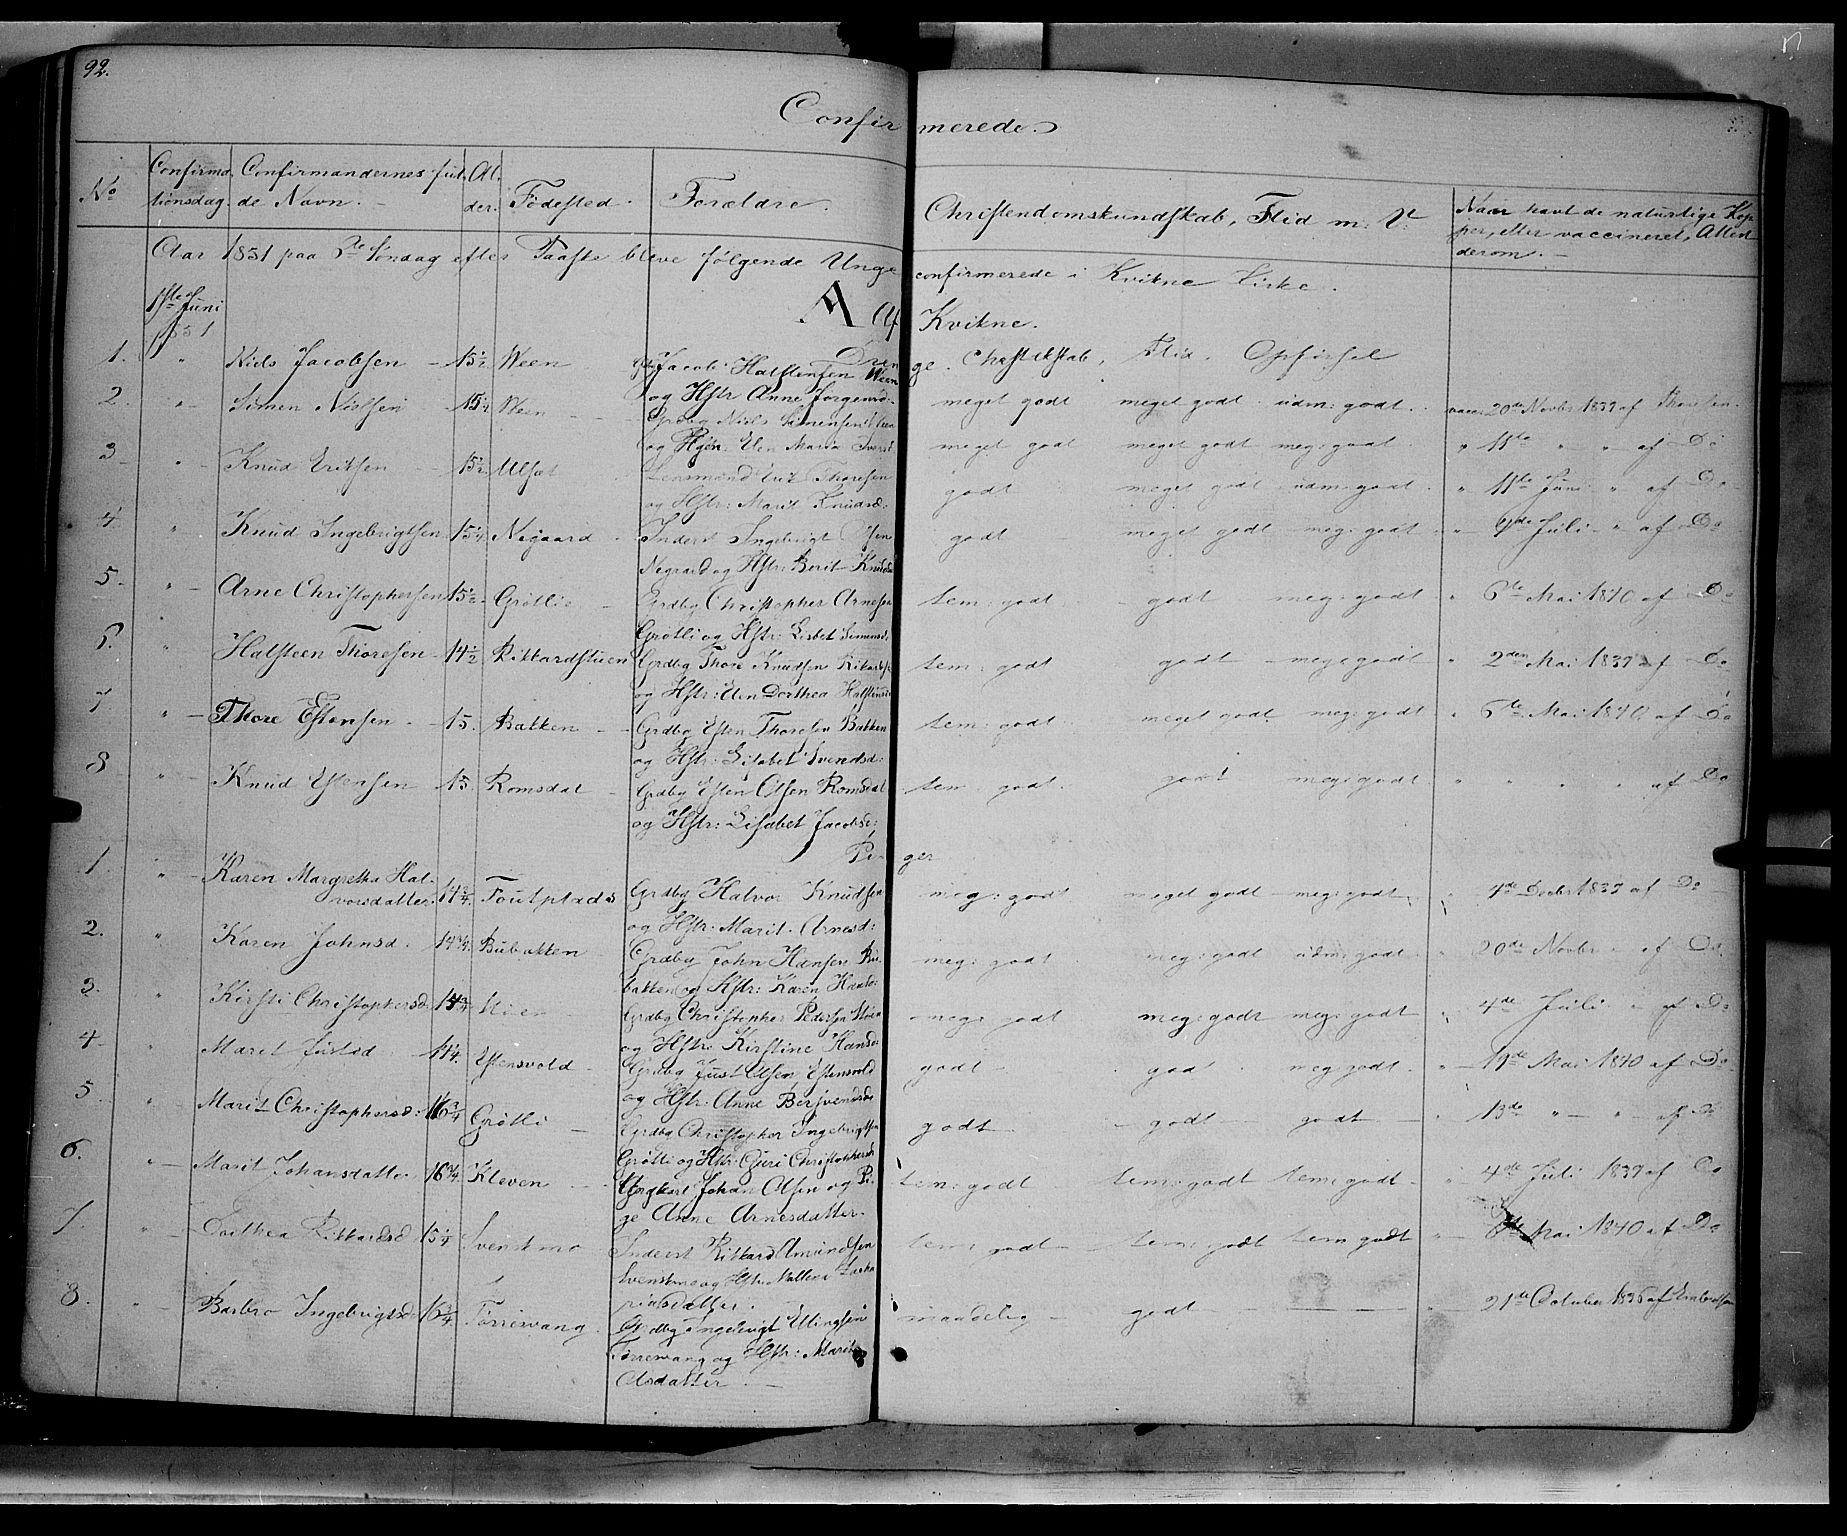 92.
Confirmerede.
No
Confirmationsdag.
Confirmandernes fulde Navn.
Alder.
Fødested.
Forældre.
Christendomskundskab, Flid m: V:
Naar havt de naturlige Kopper, eller vaccineret, Attest derom.
Aar 1851 paa Søndag efter Paaske bleve følgende Unge confirmerede i Kvikne Kirke.
Juni 1851
A Af Kvikne.
Drenge. Christdkskab, Flid, Opførsel
1. " Niels Jacobsen 15½ Ween Jacob Halstensen Ween
og Hstr Anne Jørgensd. meget godt meget godt udm: godt vacc 20de Novbr 1837 af Thoresen.
2 " Simen Nielsen 15¼ Ween Grdbg Niels Simensen Ween
og Elen Maria Iversd meget godt meget godt meg: godt " 11te " " af Do
3 " Knud Eriksen 15½ Ulset Lensmand Erik Thoresen
og Hstr: Marit Knudsd: godt meget godt udm: godt " 11te Juni " af Do
4 " Knud Ingebrigtsen 15¼ Nøgaard Inderst Ingebrigt Olsen
og Hstr: Berit Knudsd godt meget godt meg: godt " Juli " af Do
5 " Arne Christophersen 15½ Grøtlie Grdbg Christopher Arnesen
Grøtli og Hstr: Lisbet Simensd: tem: godt godt meg: godt " 6te Mai 1840 af Do
6. " Halsteen Thoresen 14½ Rikkardstuen Grdbg Thore Knudsen
og Hstr: Elen Dorthea Halstensd tem: godt godt meg: godt " 2den Mai 1837 af Do
7 " Thore Estensen 15. Bakken Grdbg Esten Thoresen Bakken
og Hstr: Lisabet Svendsd: tem: godt meget godt meg: godt " 6te Mai 1840 af Do
8 " Knud Estensen 15 Romsdal Grdbg Esten Olsen Romsdal
og Hstr: Lisabet Jacobsd: tem: godt. godt meg: godt " " " af Do
Piger
1 " Karen Margretha Halvorsdatter 14¾ Grdbg Halvor Knudsen
og Hstr: Marit Arnesd: meg: godt meget godt meg: godt " 4de Decbr 1837 af Do
2. " Karen Johnsd. 14¾ Bubakken Grdbg John Hansen Bubakken
og Hstr: Karen Hansd: meg: godt meg: godt udm: godt " 20de Novbr " af Do
3. " Kirsti Christophersd. Grdbg Christopher Pedersen
og Hstr: Kirstine Hansd: meg: godt meg: godt meg: godt " 4de Juli " af Do
4 " Maret Justsd Estensvold Grdbg Just Olsen Estensvold
og Hstr: Anne Bersvendsd: godt godt meg godt. " 19de Mai 1840 af Do
5 " Marit Christophersd: 16¾ Grøtli Grdbg Christopher Ingebrigtsen
Grøtli og Hstr: Guri Christophersd godt godt godt " 13de " " af Do
6. " Marit Johansdatter 16¾ Kleven Ungkarl Johan Olsen og Pige
Anne Arnesdatter. tem: godt tem: godt tem: godt " 4de Juli 1837 af Do
7. " Dorthea Rikkardsd 15¼ Svenskmo Inderst Rikkard Amundsen
Svenskmo og Hstr: Mallena Zachariasdatter. tem: godt tem: godt tem godt " 6te Mai 1840 af Do
8. " Barbro Ingebrigtsd 16¾ Torrewang Grdbg Ingebrigt Ellingsen
Torrewang og Hstr: Marit
Olsdatter. maadelig godt — " 21de October 1836 af